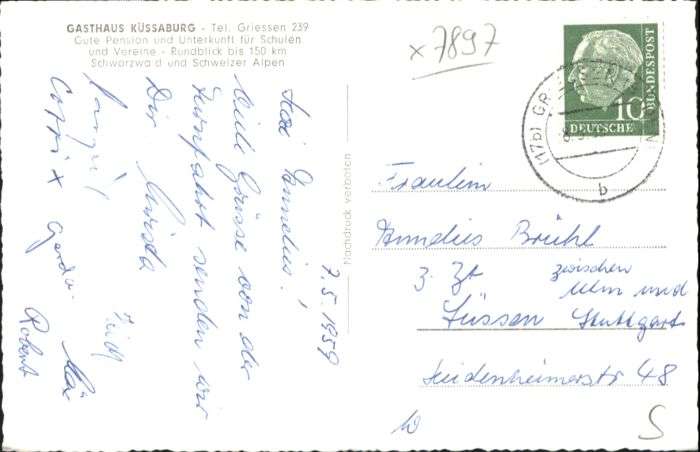 GASTHAUS KÜSSABURG - Tel. Griessen 239
Gute Pension und Unterkunft für Schulen
und Vereine - Rundblick bis 150 km
Schwarzwald und Schweizer Alpen
x7897
BUNDESPOST
10
DEUTSCHE
(17b) GRIESSEN
b
Nachdruck verboten
7.5.1959
viele Grüsse von der
Turnfahrt senden wir
Dir
Gerda
Robert
Fräulein
Anndies Brühl
z. Zt zwischen
Ulm und
Süssen Stuttgart
Heidenheimerstr 48
S